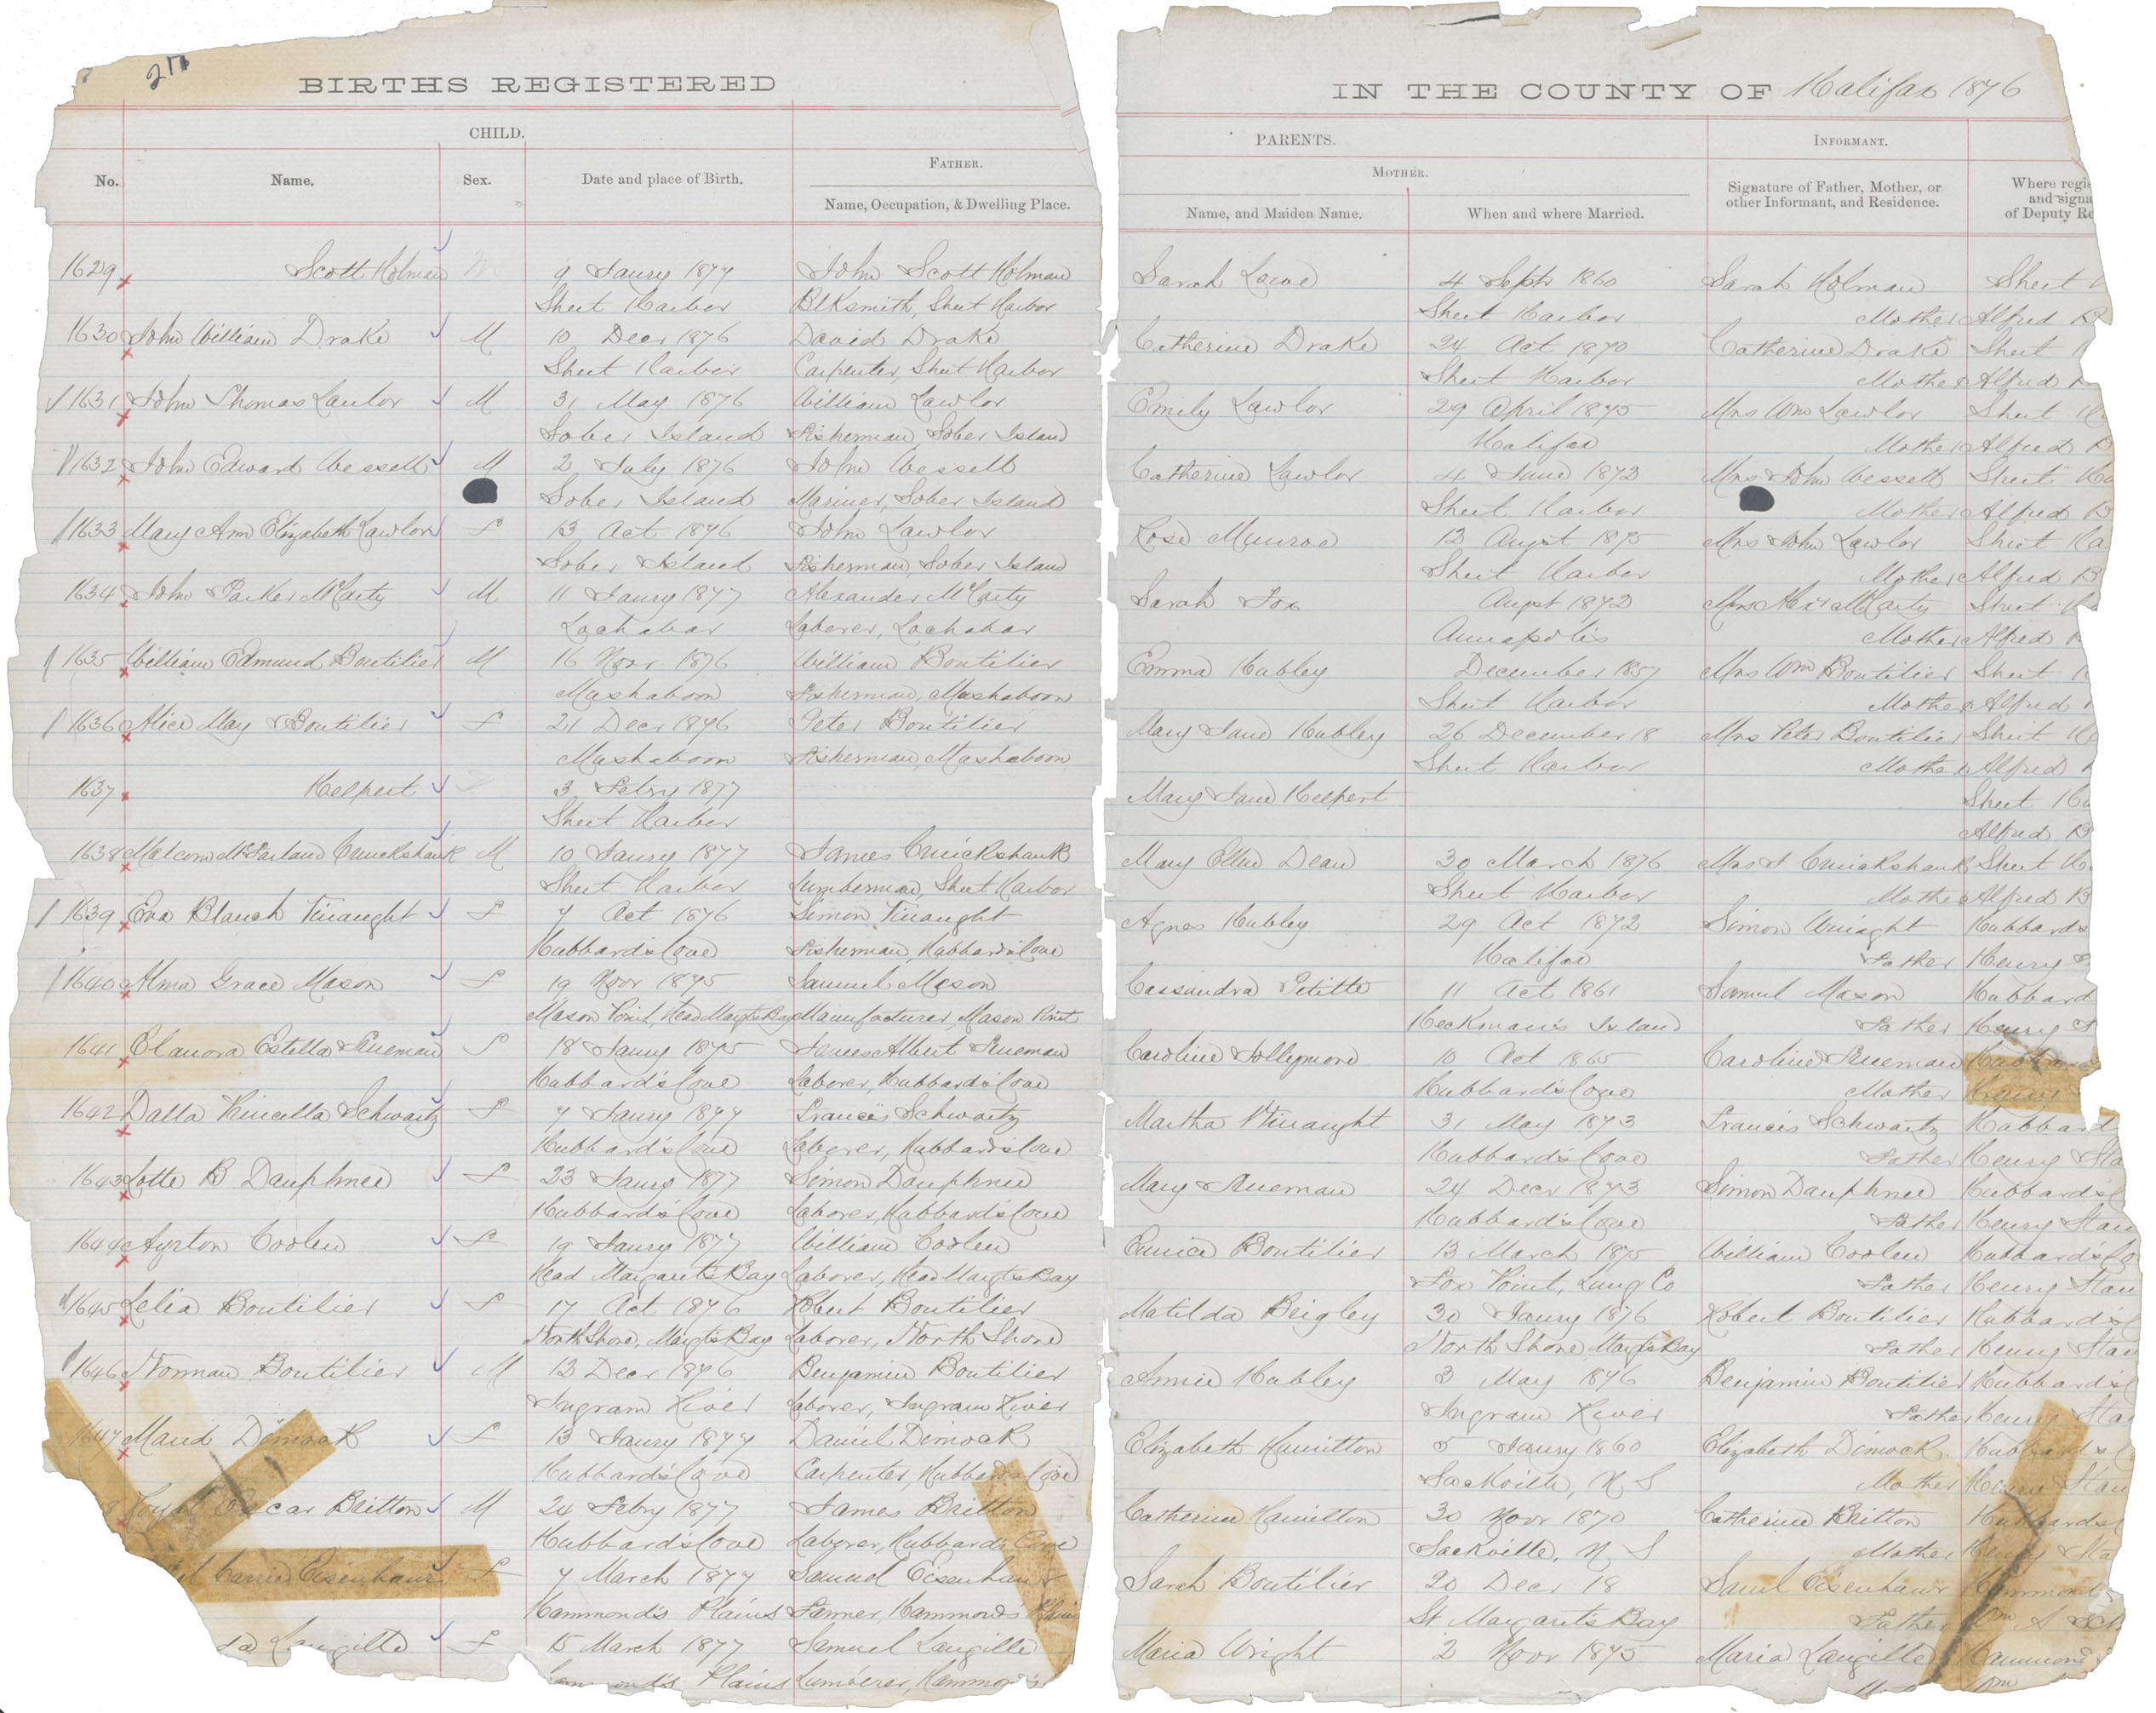 211
BIRTHS REGISTERED
IN THE COUNTY OF Halifax 1876
CHILD.
PARENTS.
INFORMANT.
FATHER.
MOTHER.
No.
Name.
Sex.
Date and place of Birth.
Name, Occupation, & Dwelling Place.
Name, and Maiden Name.
When and where Married.
Signature of Father, Mother, or
other Informant, and Residence.
Where regi
and signa
of Deputy Re
1629 Scott Holman M 9 Jaury 1877 John Scott Holman Sarah Lowe 4 Septr 1860 Sarah Holman Sheet
Sheet Harbor Blksmith, Sheet Harbor Sheet Harbor Mother Alfred
1630 John William Drake M 10 Decr 1876 David Drake Catherine Drake 24 Oct 1870 Catherine Drake Sheet
Sheet Harbor Carpenter, Sheet Harbor Sheet Harbor Mother Alfred
1631 John Thomas Lawlor M 31 May 1876 William Lawlor Emily Lawlor 29 April 1875 Mrs Wm Lawlor Sheet
Sober Island Fisherman, Sober Island Halifax Mother Alfred
1632 John Edward Wessell M 2 July 1876 John Wessell Catherine Lawlor 4 June 1872 Mrs John Wessell Sheet Ha
Sober Island Mariner, Sober Island Sheet Harbor Mother Alfred B
1633 Mary Ann Elizabeth Lawlor F 13 Oct 1876 John Lawlor Rose Munroe 12 Augst 1875 Mrs John Lawlor Sheet Ha
Sober Island Fisherman, Sober Island Sheet Harbor Mother Alfred B
1634 John Parker McCarty M 11 Jaury 1877 Alexander McCarty Sarah Fox Augst 1872 Mrs Alex McCarty Sheet
Lochabar Laborer, Lochabar Annapolis Mother Alfred
1635 William Edmund Boutilier M 16 Novr 1876 William Boutilier Emma Hubley December 1857 Mrs Wm Boutilier Sheet
Mushaboon Fisherman, Mushaboon Sheet Harbor Mother Alfred
1636 Alice May Boutilier F 21 Decr 1876 Peter Boutilier Mary Jane Hubley 26 December 18 Mrs Peter Boutilier Sheet
Mushaboon Fisherman, Mushaboon Sheet Harbor Mother Alfred
1637 Helpert 3 Febry 1877 Mary Jane Helpert Sheet Ha
Sheet Harbor Alfred B
1638 Malcom McFarland Cruickshank M 10 Jaury 1877 James Cruickshank Mary Ellen Dean 30 March 1876 Mrs J Cruickshank Sheet
Sheet Harbor Lumberman Sheet Harbor Sheet Harbor Mother Alfred B
1639 Eva Blanch Vinaught F 7 Oct 1876 Simon Vinaught Agnes Hubley 29 Oct 1872 Simon Hubbards
Hubbard's Cove Fisherman, Hubbard's Cove Halifax Father Henry
1640 Alma Grace Mason F 19 Novr 1875 Samuel Mason Cassandra Petitte 11 Oct 1861 Samuel Mason Hubbard
Mason Point, Head Margts Bay Manufacturer, Mason Point Heckman's Island Father Henry
1641 Elanora Estella Trueman F 18 Jaury 1875 James Albert Trueman Caroline Jollymore 10 Oct 1865 Caroline Trueman
Hubbard's Cove Laborer, Hubbard's Cove Hubbard's Cove Mother Henry
1642 Dalla Schwartz F 7 Jaury 1877 Francis Schwartz Martha Vinaught 31 May 1873 Francis Schwartz Hubbard
Hubbard's Cove Laborer, Hubbard's Cove Hubbard's Cove Father Henry Sta
1643 Lotte B Dauphnee F 23 Jaury 1877 Simon Dauphnee Mary Trueman 24 Decr 1873 Simon Dauphnee Hubbard's
Hubbard's Cove Laborer, Hubbard's Cove Hubbard's Cove Father Henry Stan
1644 Ayrton Coolen F 19 Jaury 1877 William Coolen Eunice Boutilier 13 March 1875 William Coolen Hubbard's Co
Head Margaret's Bay Laborer, Head Margts Bay Fox Point, Lung Co Father Henry Stan
1645 Lelia Boutilier F 17 Oct 1876 Robert Boutilier Matilda Beigley 30 Jaury 1876 Robert Boutilier Hubbard's
North Shore, Margts Bay Laborer, North Shore North Shore Margts Bay Father Henry Stan
1646 Norman Boutilier M 13 Decr 1876 Benjamin Boutilier Annie Hubley 3 May 1876 Benjamin Boutilier Hubbard's
Ingram River Laborer, Ingram River Ingram River Father Henry Stan
1647 Maud Dimock F 13 Jaury 1877 Daniel Dimock Elizabeth Hamilton 5 Jaury 1860 Elizabeth Dimock Hubbard's
Hubbard's Cove Carpenter, Hubbard's Cove Sackville, N S Mother Henry Stan
8 Oscar Britton M 24 Febry 1877 James Britton Catherine Hamilton 30 Novr 1870 Catherine Britton Hubbards
Hubbard's Cove Laborer, Hubbard's Cove Sackville, N S Mother Henry Sta
Carrie Eisenhaur F 7 March 1877 Samuel Eisenhaur Sarah Boutilier 20 Decr 18 Saml Eisenhaur Hammond
Hammond's Plains Farmer, Hammond's Plains St Margaret's Bay Father Wm A
da Langille F 15 March 1877 Samuel Langille Maria Wright 2 Novr 1875 Maria Langille Hammond
Plains Lumberer, Hammond's Wm